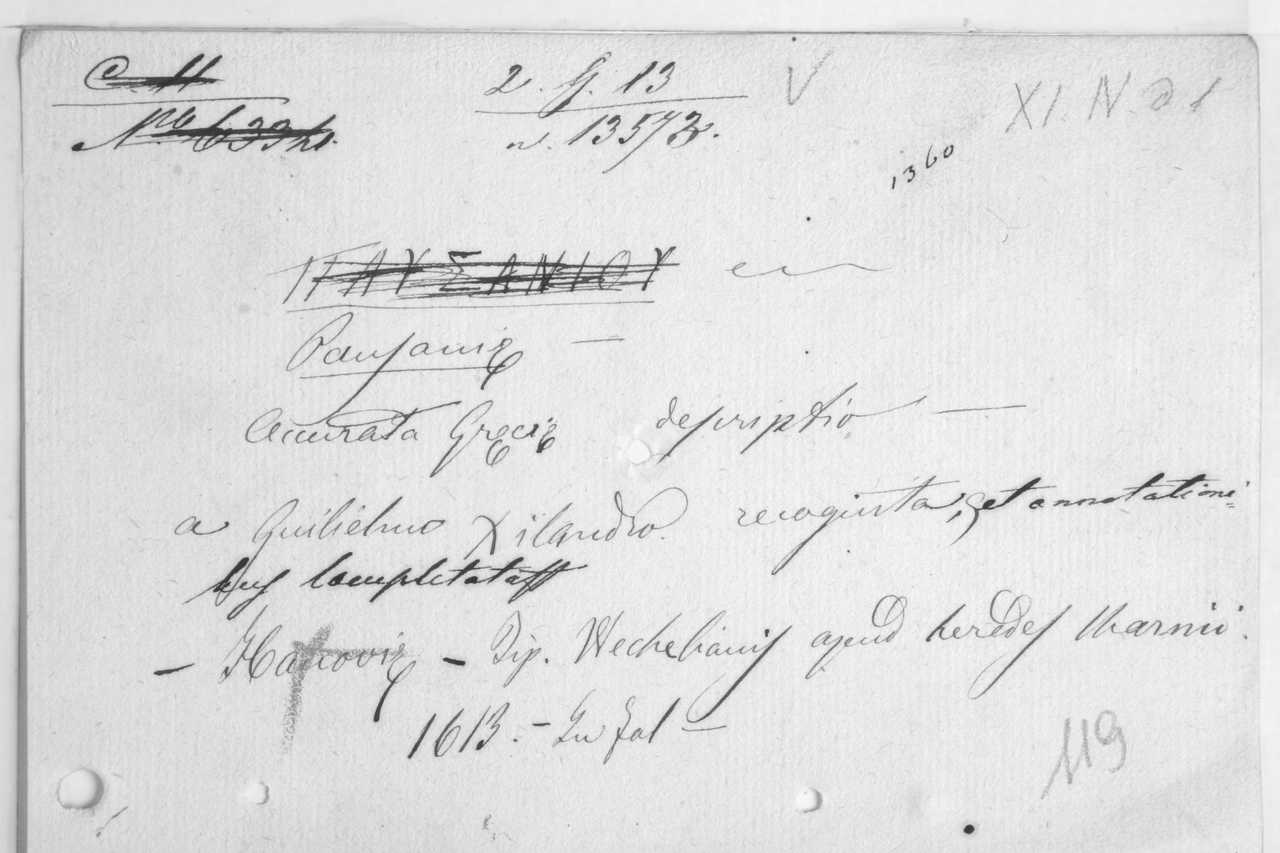 C. 11
2. G. 13
V
XI. N d 1
Nro 6334.
n. 13573.
1360
ΠΑΥΣΑΝΙΟΥ
Pausanię —
Accurata Gręcię descriptio —
a Guilielmo Xilandro. recognita, et annotationi=
bus locupletata
— Hanovię — Tip. Wechelianis apud heredes Marnii.
1613. — In fol —
119